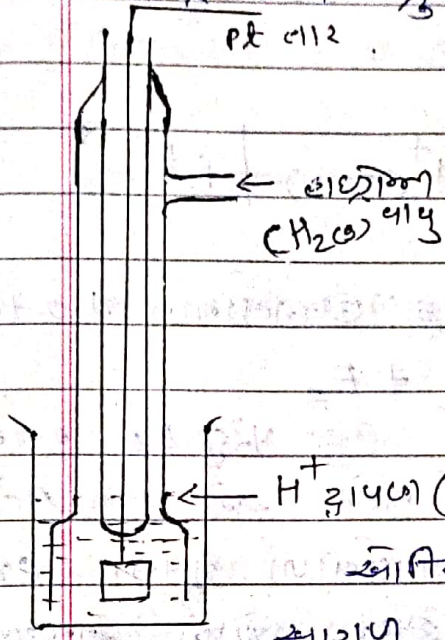 Pt તાર
← હાઇડ્રોજન
(H₂(g)) વાયુ
← H⁺ દ્રાવણ (